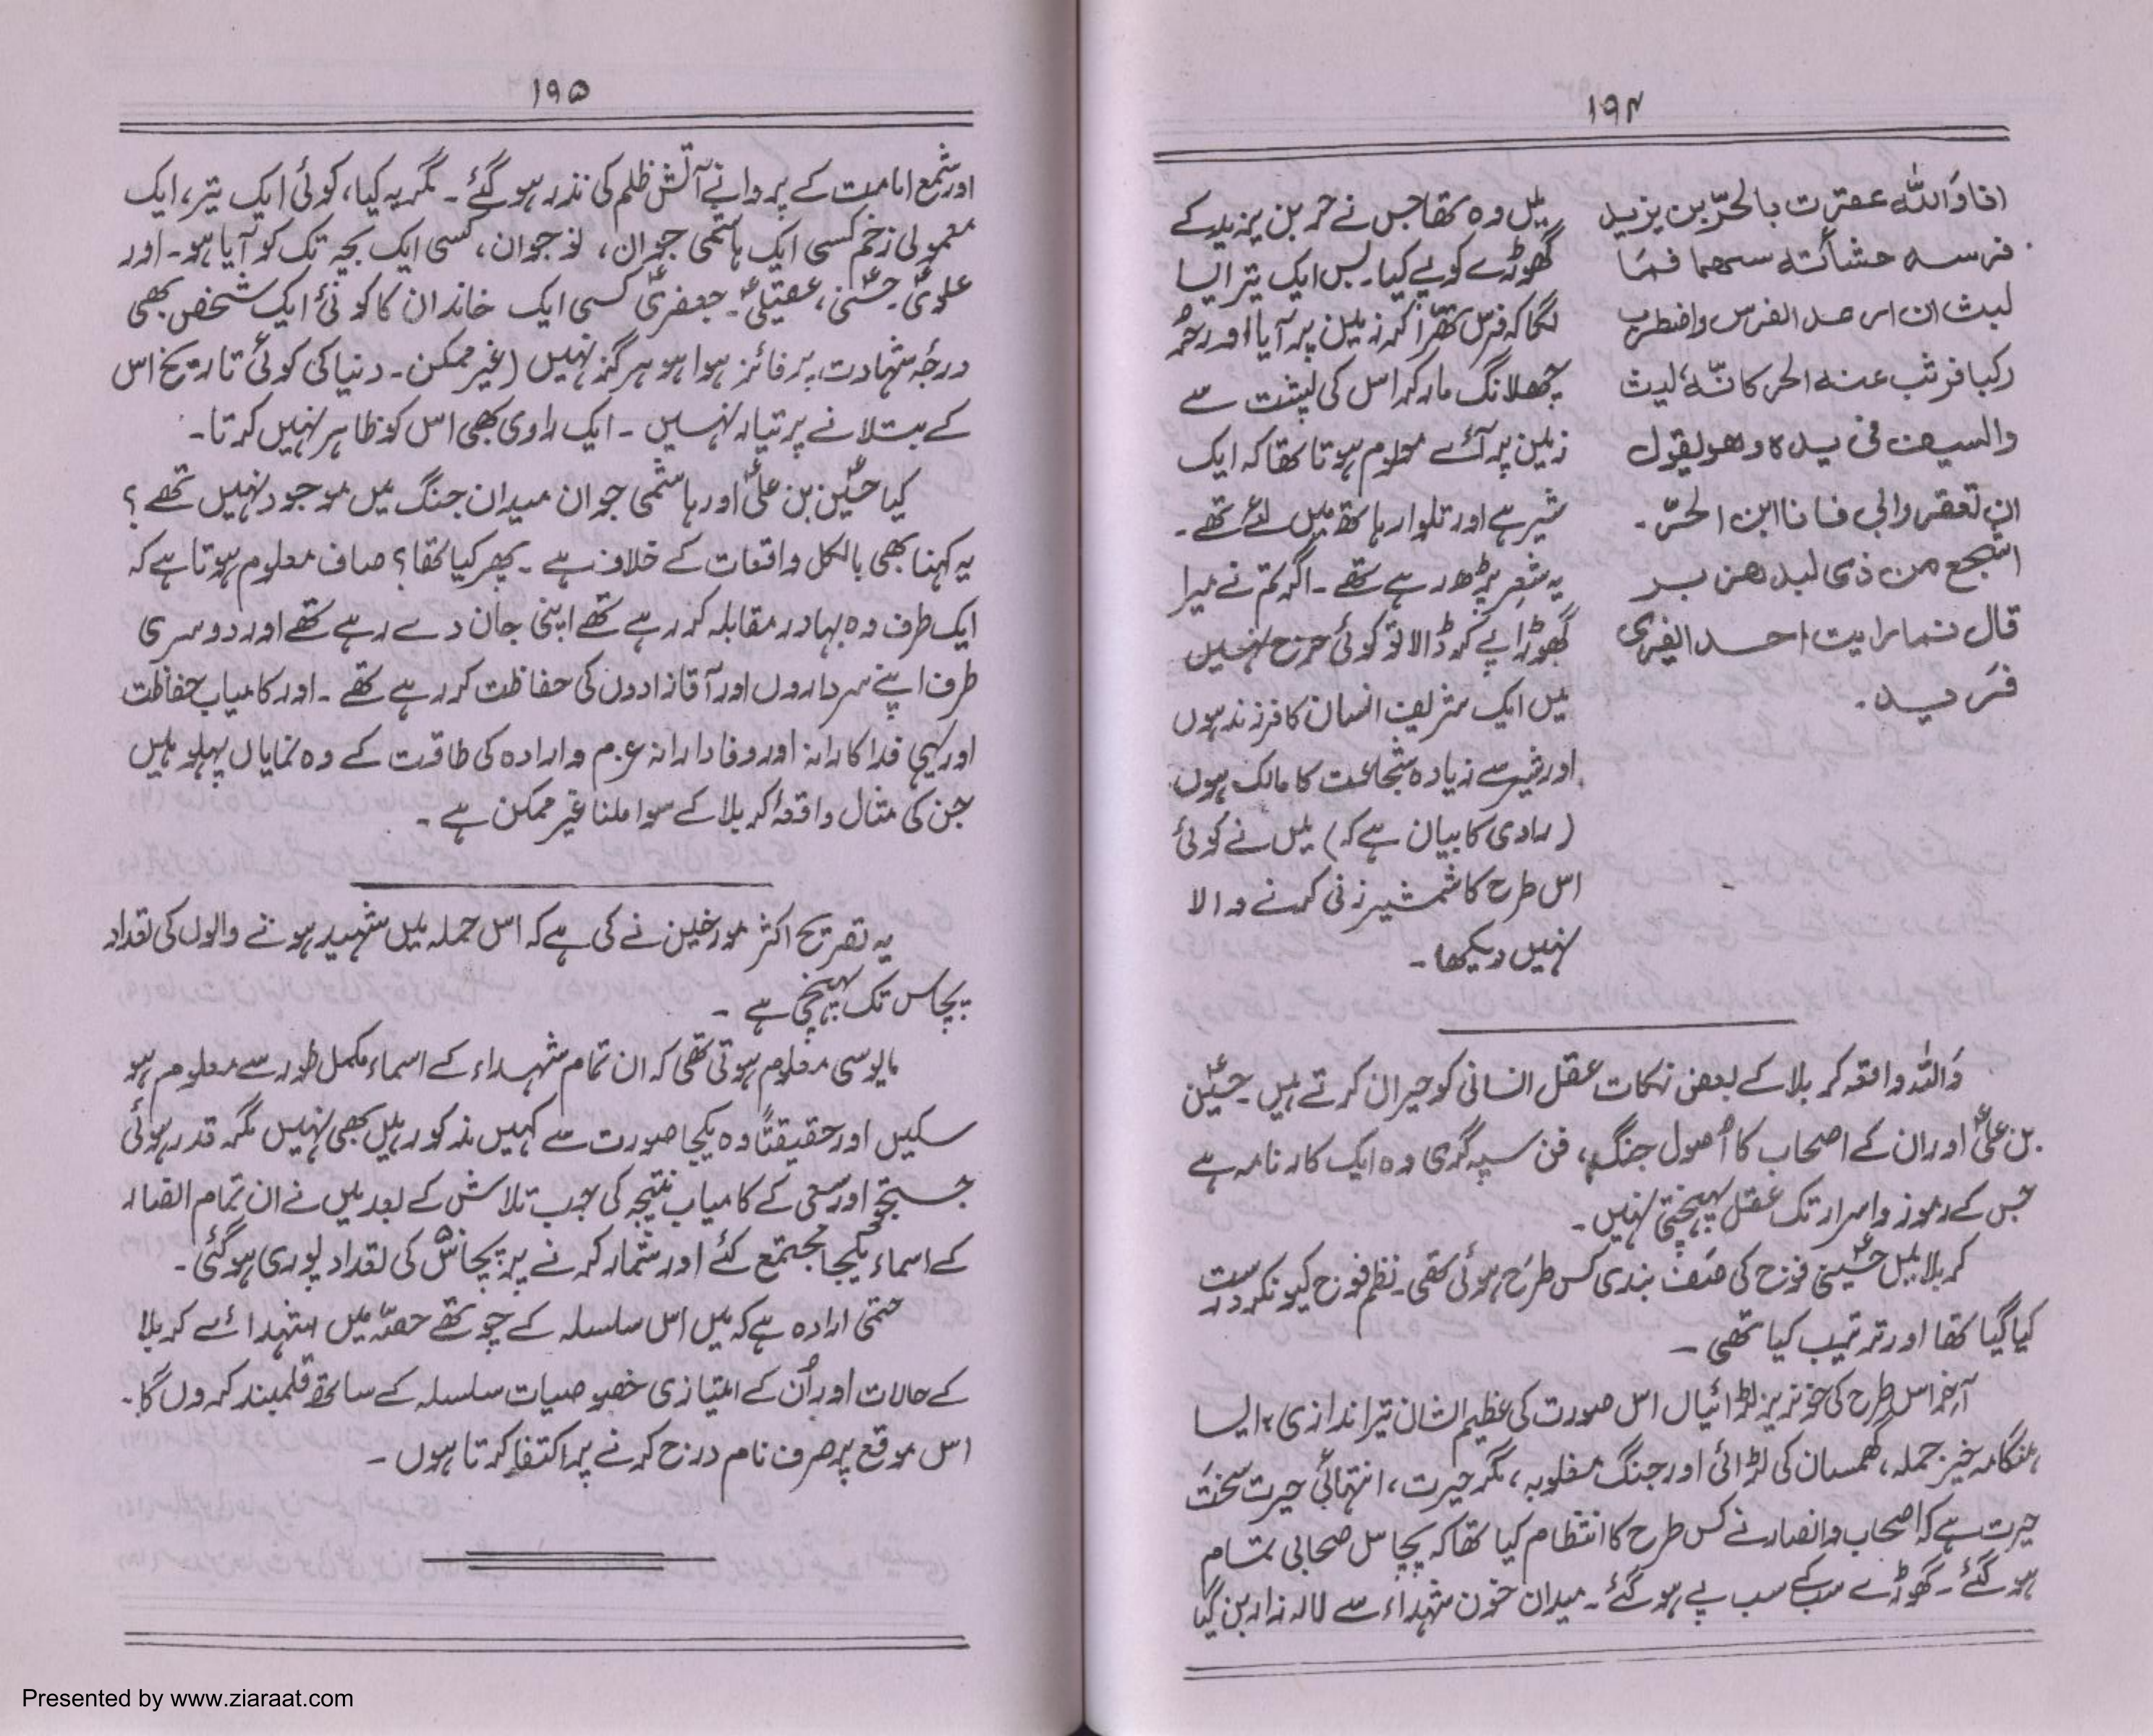 ۱۹۴
انا وَاللہ عقرت بالحرّ بن یزید
فرسہ حشأتہ سھما فمَا
لبث ان ارعد الفرس واضطرب
وکبا فوثب عنہ الحر کانّہ لیث
والسیف فی یدہ وھو یقول
ان تعقروا بی فانا ابن الحرّ۔
اشجع من ذی لبد ھزبر
قال فما رایت احد ایفری
فریہ۔
میں وہ تھا جس نے حر بن یزید کے
گھوڑے کو پے کیا۔ بس ایک تیر ایسا
لگا کہ فرس تھرّا کر زمین پر آیا اور حُر
چھلانگ مار کر اس کی پشت سے
زمین پر آئے معلوم ہوتا تھا کہ ایک
شیر ہے اور تلوار ہاتھ میں لئے تھے۔
یہ شعر پڑھ رہے تھے۔ اگر تم نے میرا
گھوڑا پے کر ڈالا تو کوئی حرج نہیں
میں ایک شریف انسان کا فرزند ہوں
اور شیر سے زیادہ شجاعت کا مالک ہوں
(راوی کا بیان ہے کہ) میں نے کوئی
اس طرح کا شمشیر زنی کرنے والا
نہیں دیکھا۔
وَاللہ واقعہ کربلا کے بعض نکات عقل انسانی کو حیران کرتے ہیں حسینؑ
بن علیؑ اور ان کے اصحاب کا اُصول جنگ، فن سپہ گری وہ ایک کارنامہ ہے
جس کے رموز و اسرار تک عقل پہنچتی نہیں۔
کربلا میں حسینیؑ فوج کی صَف بندی کس طرح ہوئی تھی۔ نظم فوج کیونکر درست
کیا گیا تھا اور ترتیب کیا تھی۔
آخر اس طرح کی خونریز لڑائیاں اس صورت کی عظیم الشان تیر اندازی، ایسا
ہنگامہ خیز حملہ، گھمسان کی لڑائی اور جنگ مغلوبہ، مگر حیرت، انتہائی حیرت سخت
حیرت ہے کہ اصحاب و انصار نے کس طرح کا انتظام کیا تھا کہ پچاس صحابی تمام
ہو گئے۔ گھوڑے سب کے سب پے ہو گئے۔ میدان خون شہداء سے لالہ زار بن گیا
۱۹۵
اور شمع امامت کے پروانے آتش ظلم کی نذر ہو گئے۔ مگر یہ کیا، کوئی ایک تیر، ایک
معمولی زخم کسی ایک ہاشمی جوان، نوجوان، کسی ایک بچہ تک کو آیا ہو۔ اور
علویؑ۔ حسنیؑ، عقیلیؑ۔ جعفریؑ کسی ایک خاندان کا کوئی ایک شخص بھی
درجۂ شہادت پر فائز ہوا ہو ہرگز نہیں (غیر ممکن۔ دنیا کی کوئی تاریخ اس
کے بتلانے پر تیار نہیں۔ ایک راوی بھی اس کو ظاہر نہیں کرتا۔
کیا حسینؑ بن علیؑ اور ہاشمی جوان میدان جنگ میں موجود نہیں تھے؟
یہ کہنا بھی بالکل واقعات کے خلاف ہے۔ پھر کیا تھا؟ صاف معلوم ہوتا ہے کہ
ایک طرف وہ بہادر مقابلہ کر رہے تھے اپنی جان دے رہے تھے اور دوسری
طرف اپنے سرداروں اور آقازادوں کی حفاظت کر رہے تھے۔ اور کامیاب حفاظت
اور یہی فداکارانہ اور وفادارانہ عزم و ارادہ کی طاقت کے وہ نمایاں پہلو ہیں
جن کی مثال واقعۂ کربلا کے سوا ملنا غیر ممکن ہے۔
یہ تصریح اکثر مورخین نے کی ہے کہ اس حملہ میں شہید ہونے والوں کی تعداد
پچاس تک پہنچی ہے۔
مایوسی معلوم ہوتی تھی کہ ان تمام شہداء کے اسماء مکمل طور سے معلوم ہو
سکیں اور حقیقتاً وہ یکجا صورت سے کہیں مذکور ہیں بھی نہیں مگر قدر ہوئی
جستجو اور سعی کے کامیاب نتیجہ کی جب تلاش کے بعد میں نے ان تمام انصار
کے اسماء یکجا مجتمع کئے اور شمار کرنے پر پچاس کی تعداد پوری ہو گئی۔
حتمی ارادہ ہے کہ میں اس سلسلہ کے چوتھے حصّہ میں شہدائے کربلا
کے حالات اور اُن کے امتیازی خصوصیات سلسلہ کے ساتھ قلمبند کروں گا۔
اس موقع پر صرف نام درج کرنے پر اکتفا کرتا ہوں۔
Presented by www.ziaraat.com